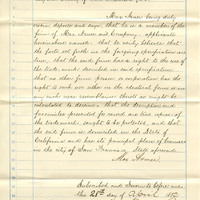 Max Nunn being duly
sworn deposes and says, that he is a member of the
firm of Max Nunn and Company, applicants
hereinabove named: that he verily believes that
the facts set forth in the foregoing specification are
true, that the said firm has a right to the use of
the trade-mark described in said specification;
that no other firm, person or corporation has the
right to such use either in the identical form or in
any such near resemblance thereto as might be
calculated to deceive; that the description and
facsimiles presented for record are true copies of
the trade-mark, sought to be protected, and that
the said firm is domiciled in the State of
California and has its principal place of business
in the city of San Francisco State aforesaid.
Subscribed and Sworn to before me
the 25th day of April